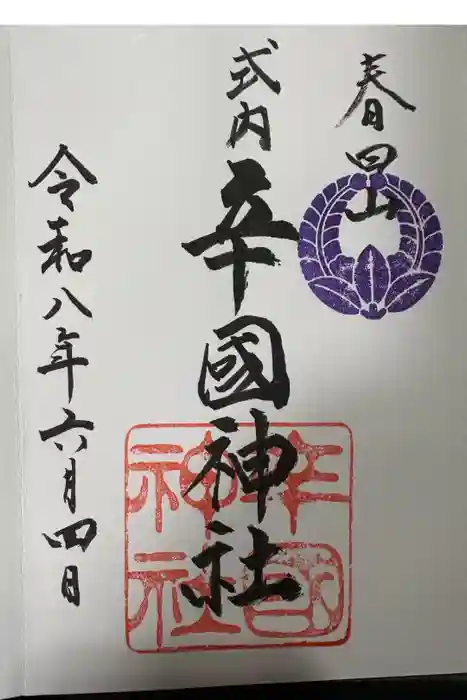 春日山
式内 辛國神社
辛國
神社
令和八年六月四日